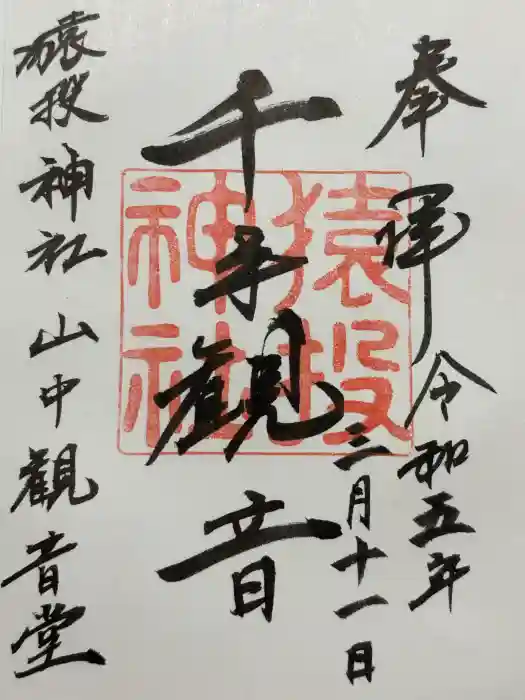 奉拝
令和五年
三月十一日
千手観音
猿投神社
猿投神社山中観音堂